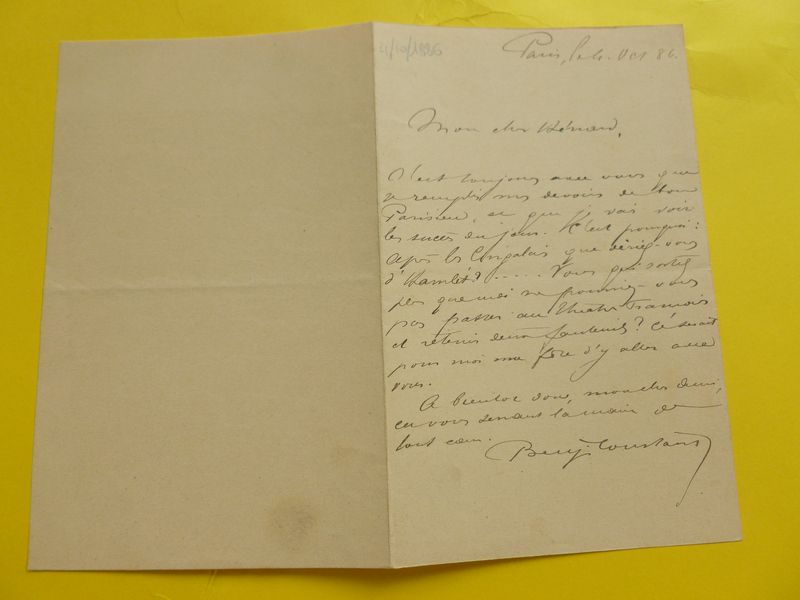 4/10/1886
Paris, le 4. Oct 86.
Mon cher Hénard,
C'est toujours avec vous que
je remplis mes devoirs de bon
Parisien, et que je vais voir
les succès du jour. C'est pourquoi :
après les Cingalais que diriez-vous
d'Hamlet? ..... Vous qui sortez
plus que moi ne pourriez-vous
pas passer au théâtre Francais
et retenir deux fauteuils? Ce serait
pour moi une fête d'y aller avec
vous.
A bientot donc, mon cher ami,
en vous serrant la main de
tout cœur.
Benj. Constant